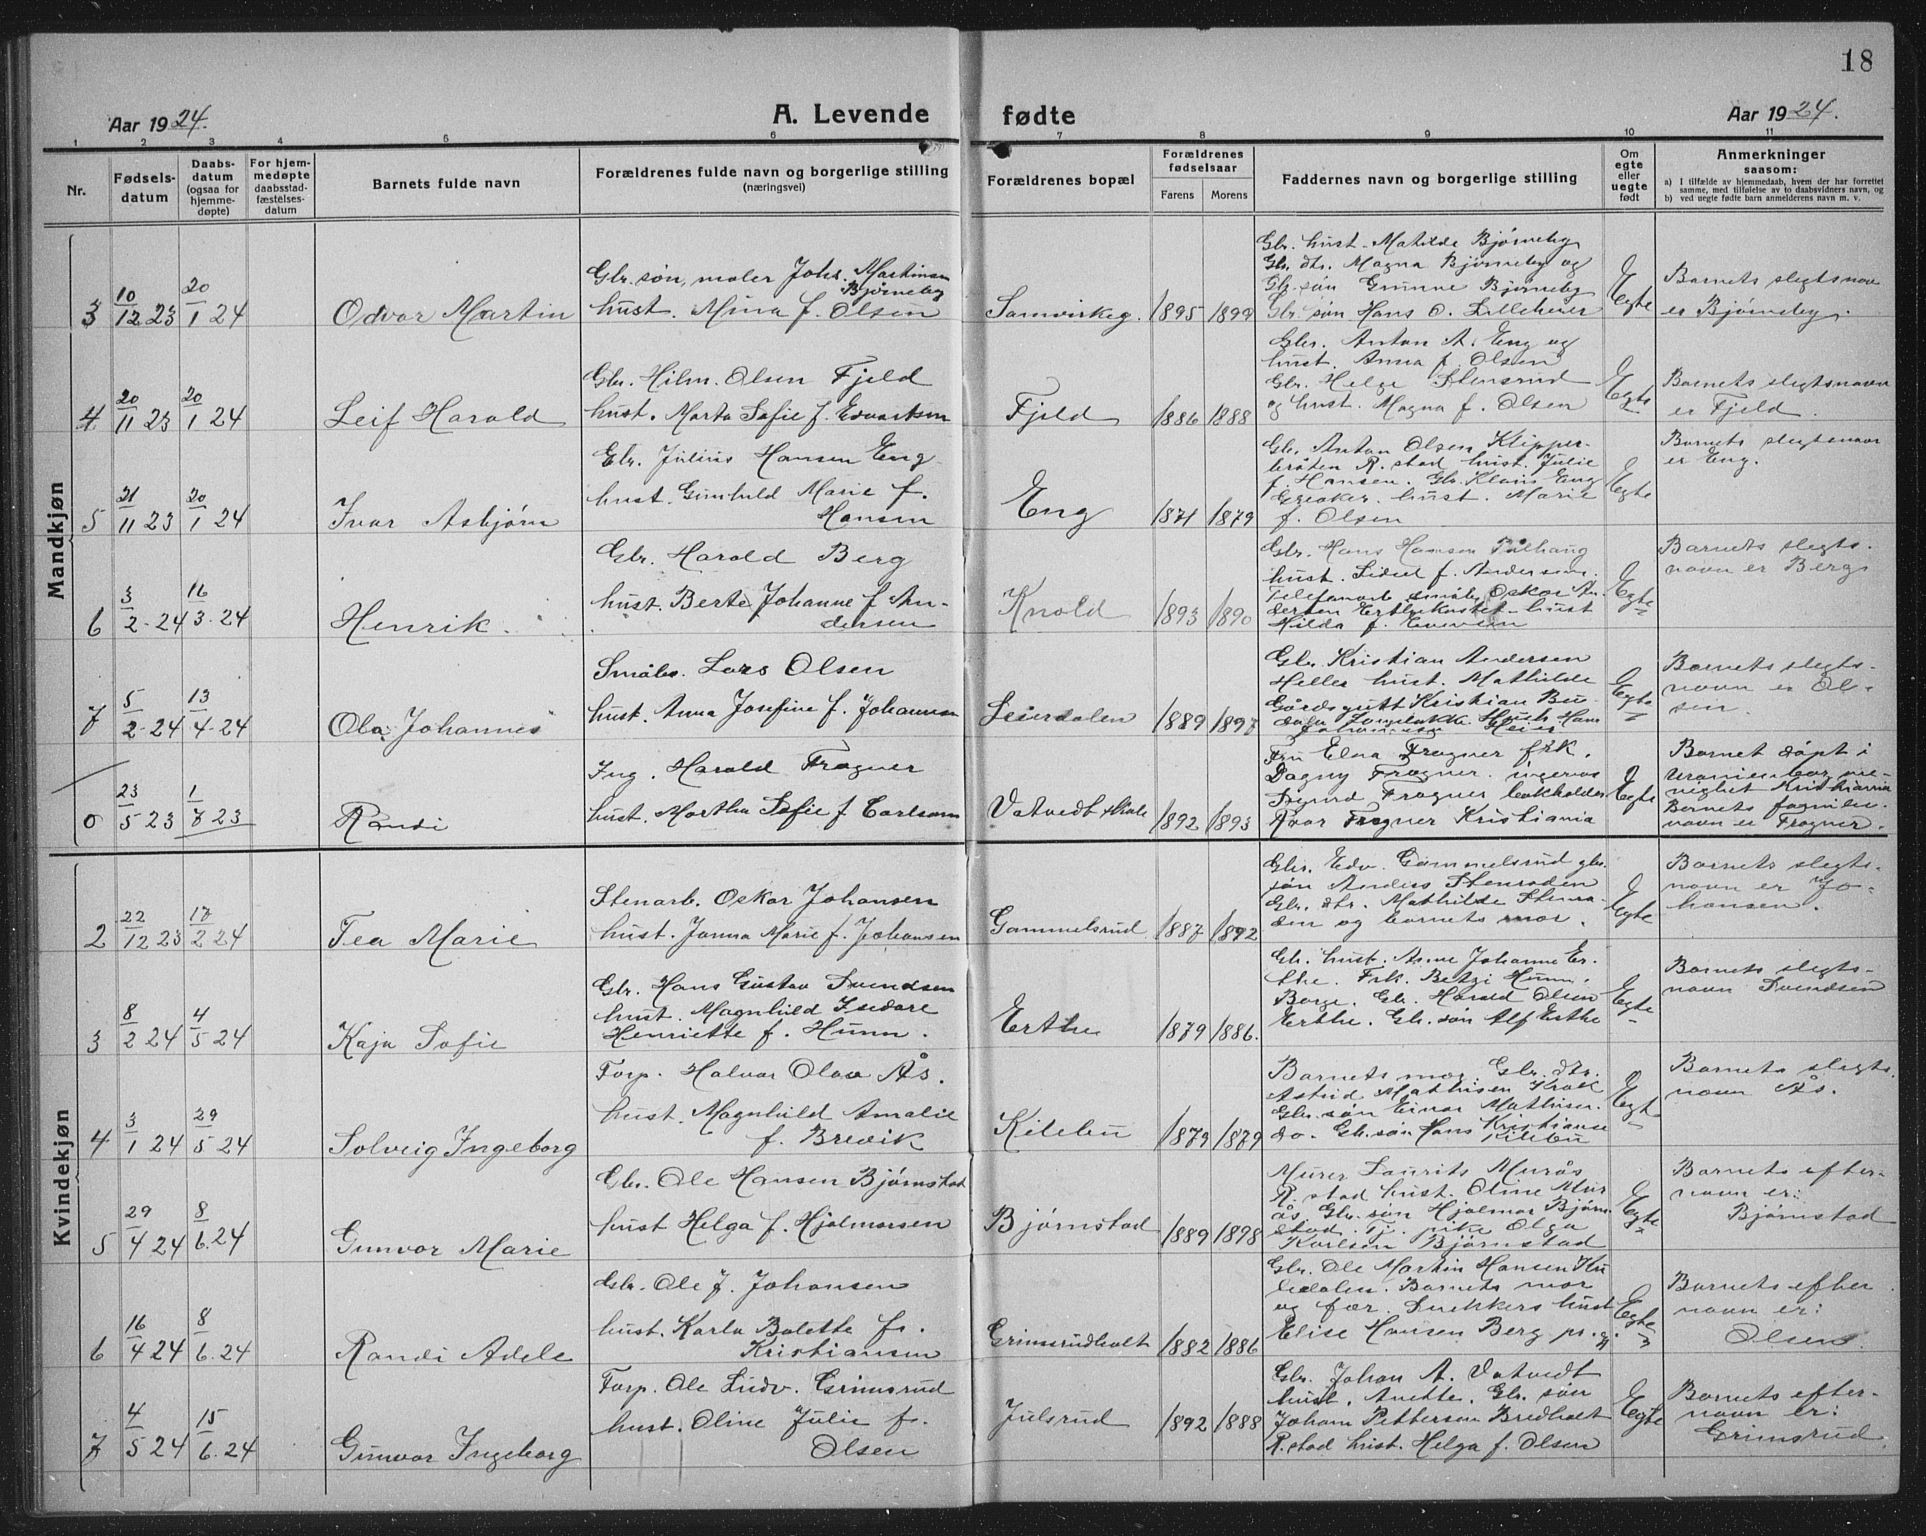 18
Aar 1924.
A. Levende fødte
Aar 1924.
1 2 3 4 5 6 7 8 9 10 11
Nr.
Fødsels-
datum
Daabs-
datum
(ogsaa for
hjemme-
døpte)
For hjem-
medøpte
daabsstad-
fæstelses-
datum
Barnets fulde navn
Forældrenes fulde navn og borgerlige stilling
(næringsvei)
Forældrenes bopæl
Forældrenes
fødselsaar
Farens Morens
Faddernes navn og borgerlige stilling
Om
egte
eller
uegte
født
Anmerkninger
saasom:
a) I tilfælde av hjemmedaab, hvem der har forrettet
samme, med tilføielse av to daabsvidners navn, og
b) ved uegte fødte barn anmelderens navn m. v.
Mandkjøn
3
10/12 23
20/1 24
Odvar Martin
Gbr. søn, maler Johs. Martinsen
Bjørneby
hust. Mina f. Olsen
Samvirkeg.
1895 1899
Gbr. hust. Matilde Bjørneby
Gbr. dtr. Magna Bjørneby og
Gbr. søn Gunne Bjørneby
Gbr. søn Hans O. Lilleheier
Egte
Barnets slegtsnavn
er Bjørneby.
4
20/11 23
20/1 24
Leif Harald
Gbr. Hilm. Olsen Fjeld
hust. Marta Sofie f. Edvartsen
Fjeld
1886 1888
Gbr. Anton A. Eng og
hust. Anna f. Olsen
Gbr. Helge Stensrud
og hust. Magna f. Olsen
Egte
Barnets slegtsnavn
er Fjeld.
5
21/11 23
20/1 24
Ivar Asbjørn
Gbr. Julius Hansen Eng
hust. Gunhild Marie f.
Hansen
Eng
1871 1879
Gbr. Anton Olsen Klipper-
bråten R. stad hust. Julie
f. Hansen. Gbr. Klaus Eng
Greaker. hust. Marie
f. Olsen
Egte
Barnets slegtsnavn
er Eng.
6
3/2 24
16/3 24
Henrik
Gbr. Harald Berg
hust. Berte Johanne f. An-
dersen
Knold
1893 1890
Gbr. Hans Hansen
hust. f. Andersen.
Telefonarb. småbr. Oskar An-
dersen hust
Hilda f. Evensen
Egte
Barnets slegts-
navn er Berg
7
5/2 24
13/4 24
Ola Johannes
Småbr. Lars Olsen
hust. Anna Josefine f. Johannesen
Leierdalen
1889 1897
Gbr. Kristian Andersen
Heller hust. Mathilde
Gårdsgutt Kristian Bu-
dalen Hans
Heier
Egte
Barnets slegts-
navn er Ol-
sen.
0
23/5 23
1/7 23
Randi
Ing. Harald Frogner
hust. Martha Sofie f. Carlsson
Vatvedt skole
1892 1893
Fru Elna Frogner frk.
Dagny Frogner. ingeniør
Frogner bokholder
Ivar Frogner Kristiania
Egte
Barnet døpt i
Uranienborg me-
nighet Kristiania
Barnets familie-
navn er Frogner.
Kvindekjøn
2
22/12 23
17/2 24
Tea Marie
Stenarb. Oskar Johansen
hust. Janna Marie f. Johansen
Gammelsrud
1887 1892
Gbr. Edv. Gammelsrud gbr.
søn Anders Stenroden
Gbr. dtr. Mathilde Stenro-
den og barnets mor.
Egte
Barnets slegts-
navn er Jo-
hansen.
3
8/2 24
4/5 24
Kaja Sofie
Gbr. Hans Gustav Svendsen
hust. Magnhild Isedore
Henriette f. Hunn.
Erthe
1879 1886.
Gbr. hust. Anne Johanne Er-
the. Frk. Betzi Hunn.
Borge. Gbr. Harald Olsen
Erthe. Gbr. søn Alf Erthe
Egte
Barnets slegts-
navn Svendsen
4
3/1 24
29/5 24
Solveig Ingeborg
Forp. Halvar Olav Ås.
hust. Magnhild Amalie
f. Brevik
Kilebu
1879 1879
Barnets mor. Gbr. dtr.
Astrid Mathisen
Gbr. søn Einar Mathisen
do. Gbr. søn Hans Kristiansen
Kilebu
Egte
Barnets slegts-
navn Ås.
5
29/4 24
8/6 24
Gunvor Marie
Gbr. Ole Hansen Bjørnstad
hust Helga f. Hjalmarsen
Bjørnstad
1889 1898
Murer Laurits Murås
R. stad hust. Oline Mur-
ås. Gbr. søn Hjalmar Bjørn-
stad. Tj. pike Olga
Karlsen Bjørnstad
Egte
Barnets efter-
navn er:
Bjørnstad
6
16/4 24
8/6 24
Randi Adele
Gbr. Ole J. Johansen
hust. Karla Bolette f.
Kristiansen
Grimsrudholt
1882 1886
Gbr. Ole Martin Hansen
Barnets mor
og far. Snekkers hust
Elise Hansen Berg
Egte
Barnets efter-
navn er:
Olsen.
7
4/5 24
15/6 24
Gunvor Ingeborg
Forp. Ole Ludv. Grimsrud
hust. Oline Julie f.
Olsen
Julsrud
1892 1888
Gbr. Johan A. Vatvedt
hust. Anette. Gbr. søn
Johan Pettersen Bredholt
R. stad hust. Helga f. Olsen
Egte
Barnets efter-
navn er:
Grimsrud.